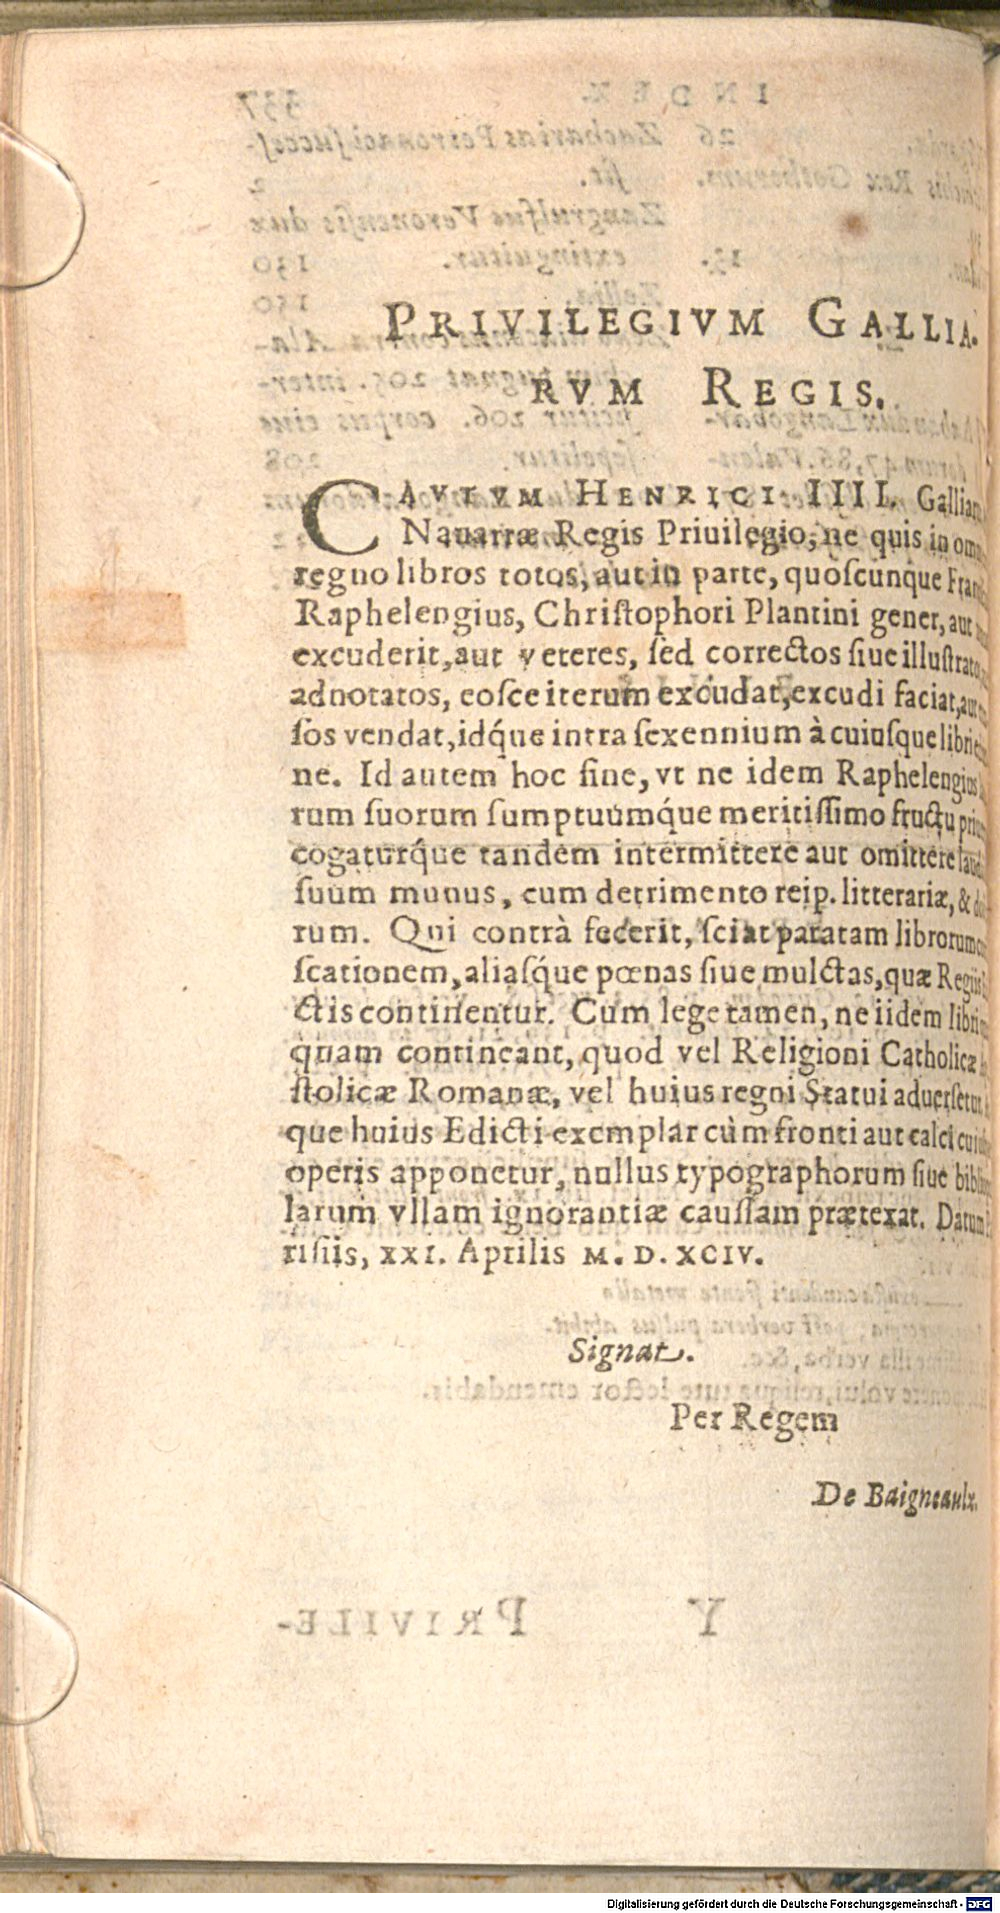 PRIVILEGIVM GALLIA-
RVM REGIS.
CAVTVM HENRICI IIII. Galliar
Nauarræ Regis Priuilegio, ne quis in om
regno libros totos, aut in parte, quoſcunque Fran
Raphelengius, Chriſtophori Plantini gener, aut
excuderit, aut veteres, ſed correctos ſiue illuſtrato
adnotatos, eoſce iterum excudat, excudi faciat, aut
ſos vendat, idq́ue intra ſexennium à cuiuſque libri
ne. Id autem hoc fine, vt ne idem Raphelengius
rum ſuorum ſumptuumq́ue meritiſſimo fructu pri
cogaturq́ue tandem intermittere aut omittere laud
ſuum munus, cum detrimento reip. litterariæ, & do
rum. Qui contrà fecerit, ſciat paratam librorum
ſcationem, aliaſq́ue pœnas ſiue mulctas, quæ Regiis
ctis continentur. Cum lege tamen, ne iidem libri
quam contineant, quod vel Religioni Catholicæ
ſtolicæ Romanæ, vel huius regni Statui aduerſetur
que huius Edicti exemplar cùm fronti aut calci cui
operis apponetur, nullus typographorum ſiue bibli
larum vllam ignorantiæ cauſſam prætexat. Datum
riſiis, XXI. Aprilis M. D. XCIV.
Signat.
Per Regem
De Baigneaulx.
Digitalisierung gefördert durch die Deutsche Forschungsgemeinschaft - DFG